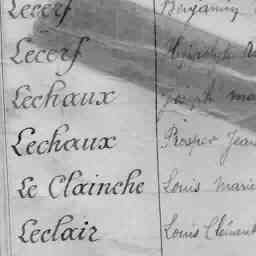 Lecerf Benjamin
Lecerf Hyacinthe
Lechaux Joseph Ma
Lechaux Prosper Jean
Le Clainche Louis Marie
Leclair Louis Clément